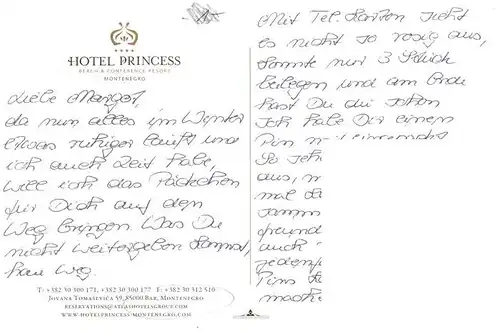 HOTEL PRINCESS
BEACH & CONFERENCE RESORT
MONTENEGRO
Liebe Margot,
da nun alles im Winter
etwas ruhiger läuft und
ich auch Zeit habe,
will ich das Päckchen
für Dich auf den
Weg bringen. Was Du
nicht weitergeben kannst,
hau weg.
T: +382 30 300 171, +382 30 300 177 F: +382 30 312 510
JOVANA TOMAŠEVIĆA 59, 85000 BAR, MONTENEGRO
WWW.HOTELPRINCESS-MONTENEGRO.COM
Mit Tel. Karten sieht
es nicht so rosig aus,
konnte nur 3 Stück
beilegen und am Ende
hast Du die schon
Ich habe Dir einen
Pin mit
aus,
mal
auch